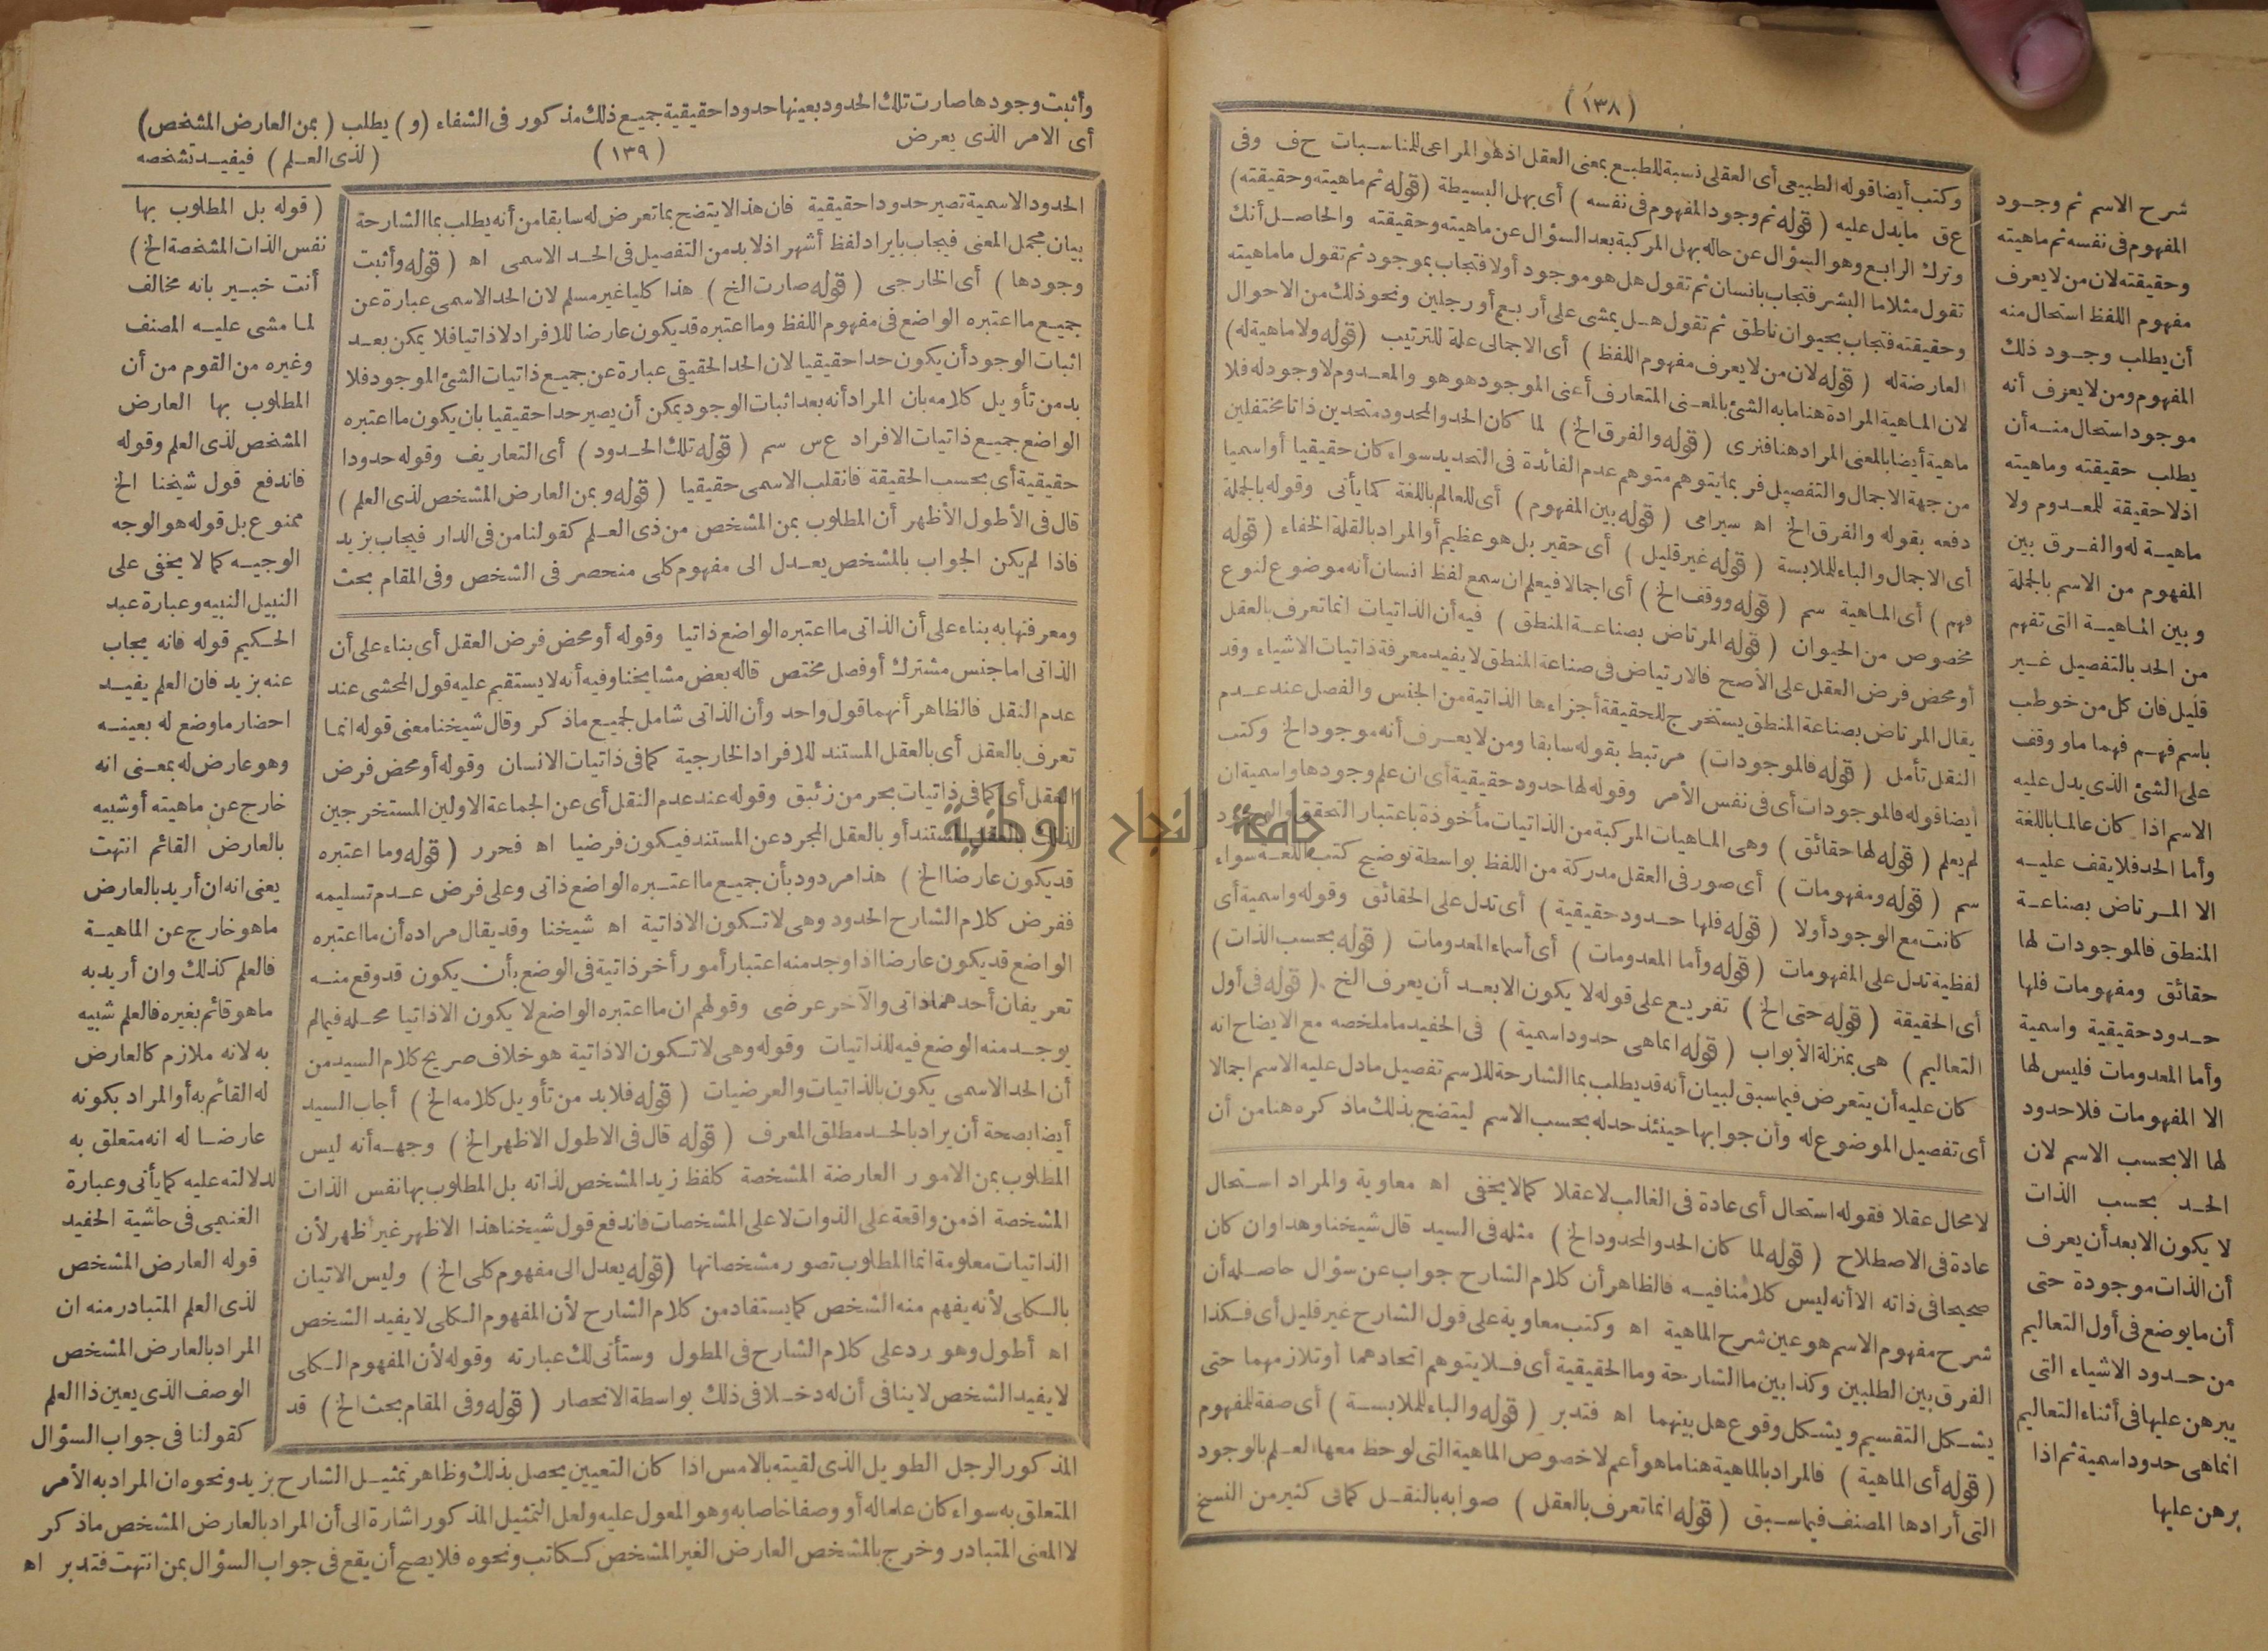 (١٣٨)
وكتب أيضا قوله الطبيعى أى العقلى نسبة للطبع بمعنى العقل اذ هو المراعى للمناسبات ح ف وفى
ع ق مايدل عليه (قوله ثم وجود المفهوم فى نفسه) أى بهل البسيطة (قوله ثم ماهيته وحقيقته)
وترك الرابع وهو السؤال عن حاله بهل المركبة بعد السؤال عن ماهيته وحقيقته والحاصل أنك
تقول مثلا ما البشر فتجاب بانسان ثم تقول هل هو موجود أولا فتجاب بموجود ثم تقول ما ماهيته
وحقيقته فتجاب بحيوان ناطق ثم تقول هل يمشى على أربع أو رجلين ونحو ذلك من الاحوال
العارضة له (قوله لان من لا يعرف مفهوم اللفظ) أى الاجمالى علة للترتيب (قوله ولا ماهية له)
لان الماهية المرادة هنا مابه الشئ بالمعنى المتعارف أعنى الموجود هو هو والمعدوم لا وجود له فلا
ماهية أيضا بالمعنى المراد هنا فنرى (قوله والفرق الخ) لما كان الحد والمحدود متحدين ذاتا مختلفين
من جهة الاجمال والتفصيل فربما يتوهم متوهم عدم الفائدة فى التحديد سواء كان حقيقيا أو اسميا
دفعه بقوله والفرق الخ اه سيرامى (قوله بين المفهوم) أى للعالم باللغة كما يأتى وقوله بالجملة
أى الاجمال والباء للملابسة (قوله غير قليل) أى حقير بل هو عظيم أو المراد بالقلة الخفاء (قوله
فهم) أى الماهية سم (قوله ووقف الخ) أى اجمالا فيعلم ان سمع لفظ انسان أنه موضوع لنوع
مخصوص من الحيوان (قوله المرتاض بصناعة المنطق) فيه أن الذاتيات انما تعرف بالعقل
أو محض فرض العقل على الأصح فالارتياض فى صناعة المنطق لا يفيد معرفة ذاتيات الاشياء وقد
يقال المرتاض بصناعة المنطق يستخرج للحقيقة أجزاءها الذاتية من الجنس والفصل عند عدم
النقل تأمل (قوله فالموجودات) مرتبط بقوله سابقا ومن لا يعرف أنه موجود الخ وكتب
أيضا قوله فالموجودات أى فى نفس الأمر وقوله لها حدود حقيقية أى ان علم وجودها واسمية ان
لم يعلم (قوله لها حقائق) وهى الماهيات المركبة من الذاتيات مأخوذة باعتبار التحقق والوجود
سم (قوله ومفهومات) أى صور فى العقل مدركة من اللفظ بواسطة توضيح كتب اللغة سواء
كانت مع الوجود أولا (قوله فلها حدود حقيقية) أى تدل على الحقائق وقوله واسمية أى
لفظية تدل على المفهومات (قوله وأما المعدومات) أى أسماء المعدومات (قوله بحسب الذات)
أى الحقيقة (قوله حتى الخ) تفريع على قوله لا يكون الا بعد أن يعرف الخ (قوله فى أول
التعاليم) هى بمنزلة الأبواب (قوله انما هى حدود اسمية) فى الحفيد ما ملخصه مع الايضاح انه
كان عليه أن يتعرض فيما سبق لبيان أنه قد يطلب بما الشارحة للاسم تفصيل مادل عليه الاسم اجمالا
أى تفصيل الموضوع له وأن جوابها حينئذ حد له بحسب الاسم ليتضح بذلك ماذكره هنا من أن
لا محال عقلا فقوله استحال أى عادة فى الغالب لا عقلا كما لا يخفى اه معاوية والمراد استحال
عادة فى الاصطلاح (قوله لما كان الحد والمحدود الخ) مثله فى السيد قال شيخنا وهذا وان كان
صحيحا فى ذاته الا أنه ليس كلامنا فيه فالظاهر أن كلام الشارح جواب عن سؤال حاصله أن
شرح مفهوم الاسم هو عين شرح الماهية اه وكتب معاوية على قول الشارح غير قليل أى فكذا
الفرق بين الطلبين وكذا بين ما الشارحة وما الحقيقية أى فلا يتوهم اتحادهما أو تلازمهما حتى
يشكل التقسيم ويشكل وقوع هل بينهما اه فتدبر (قوله والباء للملابسة) أى صفة للمفهوم
(قوله أى الماهية) فالمراد بالماهية هنا ما هو أعم لا خصوص الماهية التى لوحظ معها العلم بالوجود
التى أرادها المصنف فيما سبق (قوله انما تعرف بالعقل) صوابه بالنقل كما فى كثير من النسخ
شرح الاسم ثم وجود
المفهوم فى نفسه ثم ماهيته
وحقيقته لان من لا يعرف
مفهوم اللفظ استحال منه
أن يطلب وجود ذلك
المفهوم ومن لا يعرف أنه
موجود استحال منه أن
يطلب حقيقته وماهيته
اذلا حقيقة للمعدوم ولا
ماهية له والفرق بين
المفهوم من الاسم بالجملة
وبين الماهية التى تفهم
من الحد بالتفصيل غير
قليل فان كل من خوطب
باسم فهم فهما ما ووقف
على الشئ الذى يدل عليه
الاسم اذا كان عالما باللغة
وأما الحد فلا يقف عليه
الا المرتاض بصناعة
المنطق فالموجودات لها
حقائق ومفهومات فلها
حدود حقيقية واسمية
وأما المعدومات فليس لها
الا المفهومات فلا حدود
لها الا بحسب الاسم لان
الحد بحسب الذات
لا يكون الا بعد أن يعرف
أن الذات موجودة حتى
أن ما يوضع فى أول التعاليم
من حدود الاشياء التى
يبرهن عليها فى أثناء التعاليم
انما هى حدود اسمية ثم اذا
برهن عليها
وأثبت وجودها صارت تلك الحدود بعينها حدودا حقيقية جميع ذلك مذكور فى الشفاء (و) يطلب (بمن العارض المشخص)
أى الامر الذى يعرض (١٣٩) (لذى العلم) فيفيد تشخصه
الحدود الاسمية تصير حدودا حقيقية فان هذا لا يتضح بما تعرض له سابقا من أنه يطلب بما الشارحة
بيان مجمل المعنى فيجاب بايراد لفظ أشهر اذ لابد من التفصيل فى الحد الاسمى اه (قوله وأثبت
وجودها) أى الخارجى (قوله صارت الخ) هذا كليا غير مسلم لان الحد الاسمى عبارة عن
جميع ما اعتبره الواضع فى مفهوم اللفظ وما اعتبره قد يكون عارضا للافراد لا ذاتيا فلا يمكن بعد
اثبات الوجود أن يكون حدا حقيقيا لان الحد الحقيقى عبارة عن جميع ذاتيات الشئ الموجود فلا
بد من تأويل كلامه بان المراد أنه بعد اثبات الوجود يمكن أن يصير حدا حقيقيا بان يكون ما اعتبره
الواضع جميع ذاتيات الافراد ع س سم (قوله تلك الحدود) أى التعاريف وقوله حدودا
حقيقية أى بحسب الحقيقة فانقلب الاسمى حقيقيا (قوله وبمن العارض المشخص لذى العلم)
قال فى الأطول الأظهر أن المطلوب بمن المشخص من ذى العلم كقولنا من فى الدار فيجاب بزيد
فاذا لم يكن الجواب بالمشخص يعدل الى مفهوم كلى منحصر فى الشخص وفى المقام بحث
ومعرفتها به بناء على أن الذاتى ما اعتبره الواضع ذاتيا وقوله أو محض فرض العقل أى بناء على أن
الذاتى اما جنس مشترك أو فصل مختص قاله بعض مشايخنا وفيه أنه لا يستقيم عليه قول المحشى عند
عدم النقل فالظاهر أنهما قول واحد وأن الذاتى شامل لجميع ماذكر وقال شيخنا معنى قوله انما
تعرف بالعقل أى بالعقل المستند للافراد الخارجية كما فى ذاتيات الانسان وقوله أو محض فرض
العقل أى كما فى ذاتيات بحر من زئبق وقوله عند عدم النقل أى عن الجماعة الاولين المستخرجين
لذلك بالعقل المستند أو بالعقل المجرد عن المستند فيكون فرضيا اه فحرر (قوله وما اعتبره
قد يكون عارضا الخ) هذا مردود بأن جميع ما اعتبره الواضع ذاتى وعلى فرض عدم تسليمه
ففرض كلام الشارح الحدود وهى لا تكون الا ذاتية اه شيخنا وقد يقال مراده أن ما اعتبره
الواضع قد يكون عارضا اذا وجد منه اعتبار أمور أخر ذاتية فى الوضع بأن يكون قد وقع منه
تعريفان أحدهما ذاتى والآخر عرضى وقولهم ان ما اعتبره الواضع لا يكون الا ذاتيا محله فيما لم
يوجد منه الوضع فيه للذاتيات وقوله وهى لا تكون الا ذاتية هو خلاف صريح كلام السيد من
أن الحد الاسمى يكون بالذاتيات والعرضيات (قوله فلابد من تأويل كلامه الخ) أجاب السيد
أيضا بصحة أن يراد بالحد مطلق المعرف (قوله قال فى الاطول الاظهر الخ) وجهه أنه ليس
المطلوب بمن الامور العارضة المشخصة كلفظ زيد المشخص لذاته بل المطلوب بها نفس الذات
المشخصة اذ من واقعة على الذوات لا على المشخصات فاندفع قول شيخنا هذا الاظهر غير أظهر لأن
الذاتيات معلومة انما المطلوب تصور مشخصاتها (قوله يعدل الى مفهوم كلى الخ) وليس الاتيان
بالكلى لأنه يفهم منه الشخص كما يستفاد من كلام الشارح لأن المفهوم الكلى لا يفيد الشخص
اه أطول وهو رد على كلام الشارح فى المطول وستأتى لك عبارته وقوله لأن المفهوم الكلى
لا يفيد الشخص لا ينافى أن له دخلا فى ذلك بواسطة الانحصار (قوله وفى المقام بحث الخ) قد
(قوله بل المطلوب بها
نفس الذات المشخصة الخ)
أنت خبير بانه مخالف
لما مشى عليه المصنف
وغيره من القوم من أن
المطلوب بها العارض
المشخص لذى العلم وقوله
فاندفع قول شيخنا الخ
ممنوع بل قوله هو الوجه
الوجيه كما لا يخفى على
النبيل النبيه وعبارة عبد
الحكيم قوله فانه يجاب
عنه بزيد فان العلم يفيد
احضار ما وضع له بعينه
وهو عارض له بمعنى انه
خارج عن ماهيته أو شبيه
بالعارض القائم انتهت
يعنى انه ان أريد بالعارض
ما هو خارج عن الماهية
فالعلم كذلك وان أريد به
ما هو قائم بغيره فالعلم شبيه
به لانه ملازم كالعارض
له القائم به أو المراد بكونه
عارضا له انه متعلق به
لدلالته عليه كما يأتى وعبارة
الغنيمى فى حاشية الحفيد
قوله العارض المشخص
لذى العلم المتبادر منه ان
المراد بالعارض المشخص
الوصف الذى يعين ذا العلم
كقولنا فى جواب السؤال
المذكور الرجل الطويل الذى لقيته بالامس اذا كان التعيين يحصل بذلك وظاهر تمثيل الشارح بزيد ونحوه ان المراد به الأمر
المتعلق به سواء كان علما له أو وصفا خاصا به وهو المعول عليه ولعل التمثيل المذكور اشارة الى أن المراد بالعارض المشخص ماذكر
لا المعنى المتبادر وخرج بالمشخص العارض الغير المشخص ككاتب ونحوه فلا يصح أن يقع فى جواب السؤال بمن انتهت فتدبر اه
جامعة النجاح الوطنية